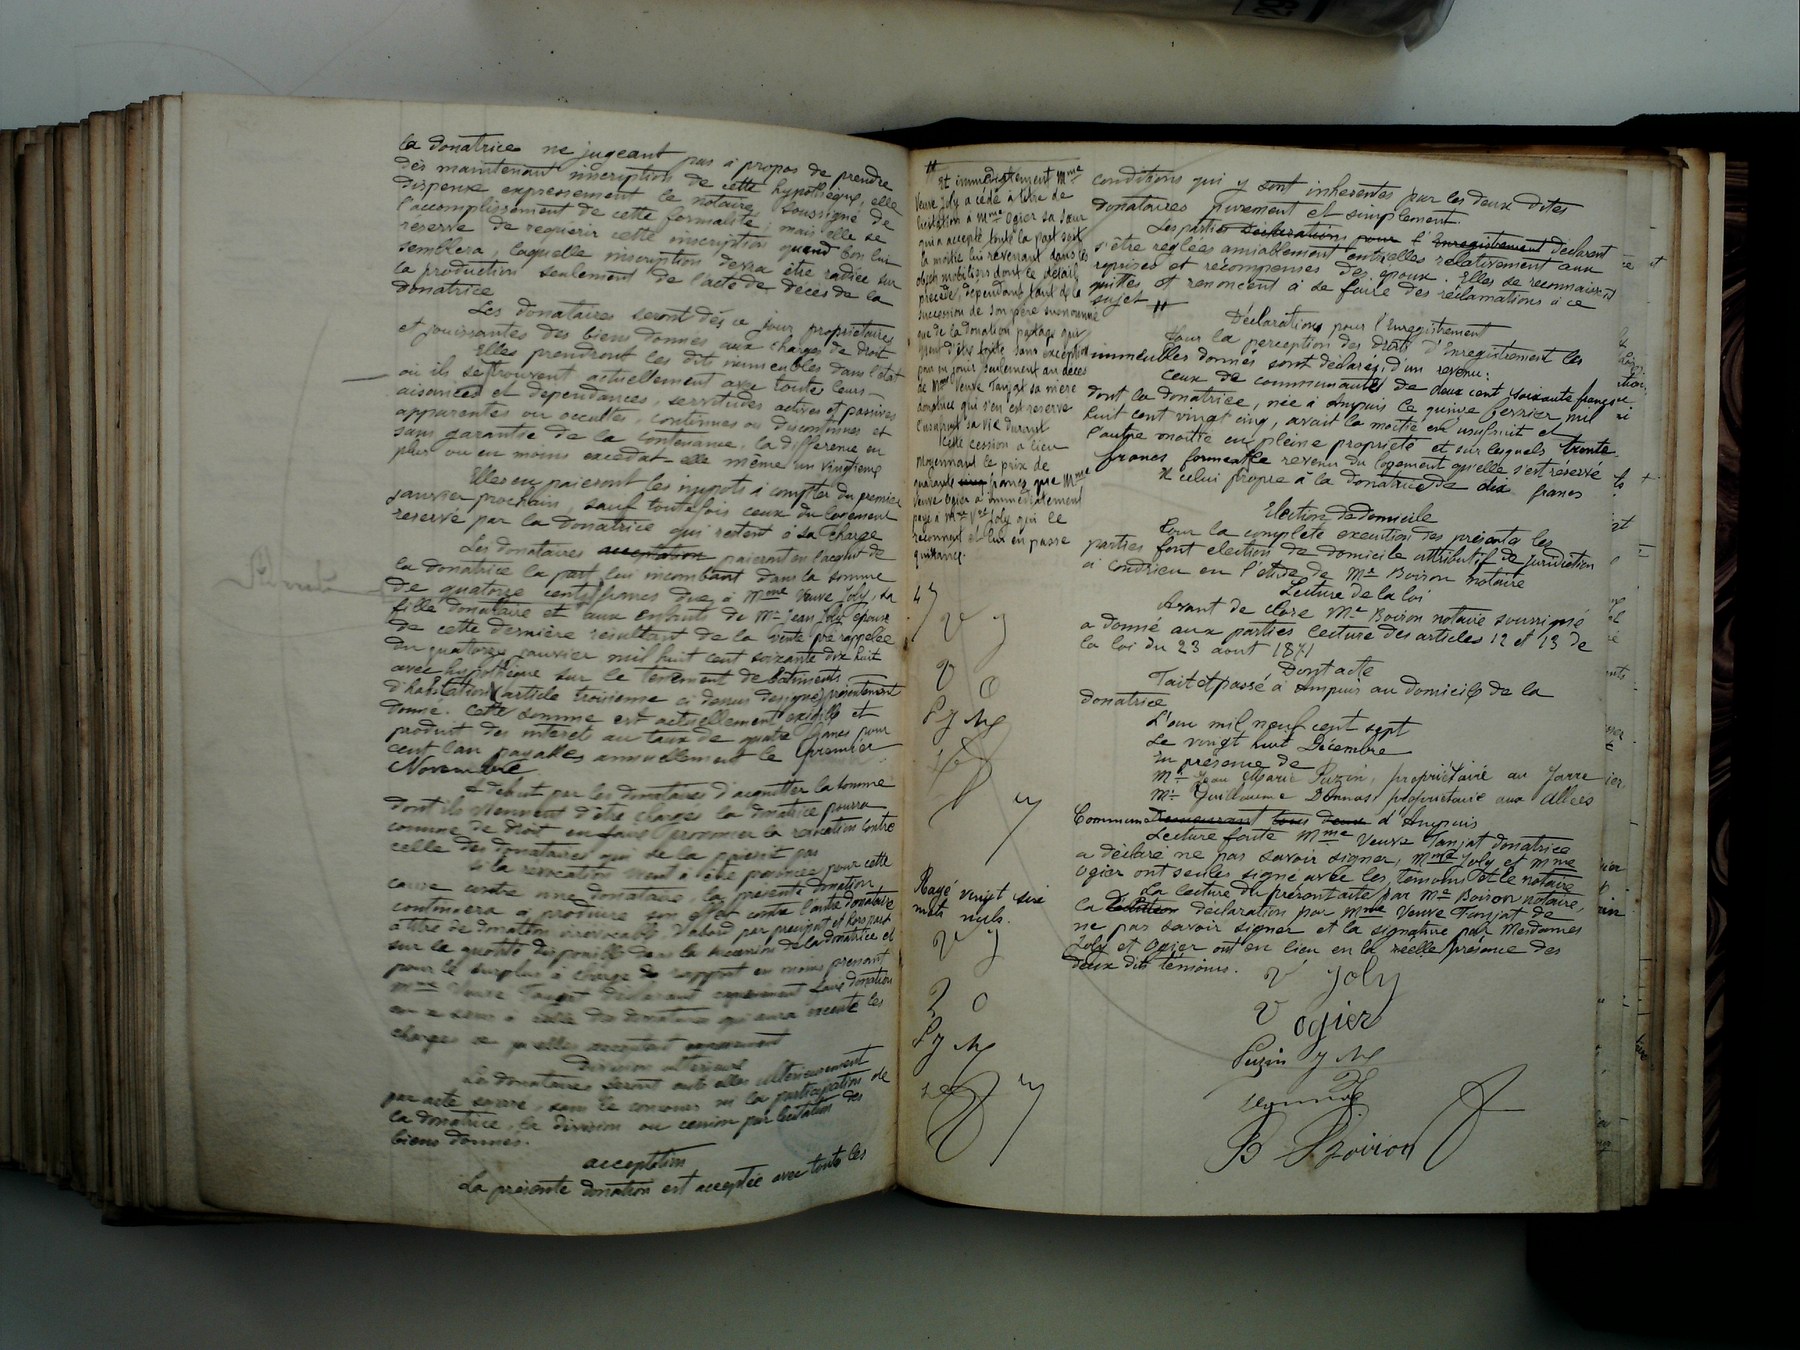 la donatrice ne jugeant pas à propos de prendre
dès maintenant inscription de cette hypothèque, elle
dispense expressement le notaire soussigné de
l'accomplissement de cette formalité, mais elle se
reserve de requerir cette inscription quand bon lui
semblera, laquelle inscription devra être radiée sur
la production seulement de l'acte de décès de la
donatrice
Les donataires seront dès ce jour propriétaires
et jouissantes des biens donnés aux charges de droit
Elles prendront les dit immeubles dans l'état
où ils se trouvent actuellement avec toutes leurs
aisances et dependances, servitudes actives et passives
apparentes ou occultes, continues ou discontinues et
sans garantie de la contenance, la différence en
plus ou en moins excedat-elle même un vingtième
Elles en paieront les impots à compter du premier
janvier prochain, sauf toutefois ceux du logement
reservé par la donatrice qui restent à sa charge
Les donataires acceptation paieront en l'acquit de
la donatrice la part lui incombant dans la somme
de quatorze cents francs due à Mme Veuve Joly, sa
fille donataire et aux enfants de Mr Jean Joly époux
de cette dernière résultant de la vente pré rappelée
du quatorze janvier mil huit cent soixante dix huit
avec hypothèque sur le tenement de bâtiments
d'habitation (article troisième ci dessus désigné) présentement
donné. Cette somme est actuellement exigible et
produit des interet au taux de quatre francs pour
cent l'an payables annuellement le premier
Novembre
A défaut par les donataires d'acquitter la somme
dont ils viennent d'être chargés la donatrice pourra
comme de droit en faire prononcer la révocation contre
celle des donataires qui ne la paierait pas
Si la révocation vient à être prononcée pour cette
cause contre une donataire, la présente donation
continuera à produire son effet contre l'autre donataire
à titre de donation irrévocable, d'abord par preciput et hors part
sur la quotité disponible dans la succession de la donatrice et
pour le surplus à charge de rapport en moins prenant
Mme Veuve Tanjat déclarant expressément faire donation
en ce sens à celle des donataires qui aura exécuté les
charges ce qu'elles acceptent expressément
Division ultérieure
Les donataires seront entre elles ultérieurement
par acte separé, sans le concours ni la participation de
la donatrice, la division ou cession par licitation des
biens donnés.
acceptation
La présente donation est acceptée avec toutes les
# Et immédiatement Mme
Veuve Joly a cédé à titre de
licitation à Mme Ogier sa sœur
qui a accepté toute la part soit
la moitié lui revenant dans les
objets mobiliers dont le détail
précède, dépendant tant de la
succession de son père susnommé
que de la donation partage qui
vient d'être faite sans exception
pour en jouir seulement au décès
de Mme Veuve Tanjat sa mère
donatrice qui s'en est reservé
l'usufruit sa vie durant
Cette cession a lieu
moyennant le prix de
quarante francs que Mme
Veuve Ogier a immédiatement
payé à Mme Vve Joly qui le
reconnait et lui en passe
quittance.
V J
V O
P J M
Rayé vingt six
mots nuls.
V J
V O
P J M
conditions qui y sont inherentes par les deux dites
donataires purement et simplement.
Les parties declarations pour l'Enregistrement déclarent
s'être reglées amiablement entr'elles relativement aux
reprises et récompenses des époux. Elles se reconnaissent
quittes et renoncent à se faire des réclamations à ce
sujet #
Déclarations pour l'Enregistrement
Pour la perception des droits d'Enregistrement les
immeubles donnés sont déclarés d'un revenu:
Ceux de communauté de deux cent soixante francs
dont la donatrice, née à Ampuis le quinze fevrier mil
huit cent vingt cinq, avait la moitié en usufruit et
l'autre moitié en pleine propriété et sur lesquels trente
francs forment le revenu du logement qu'elle s'est réservé
Et celui propre à la donatrice de dix francs
Election de domicile
Pour la complète execution des présentes les
parties font election de domicile attributif de juridiction
à Condrieu en l'etude de Me Boiron notaire
Lecture de la loi
Avant de clore Me Boiron notaire soussigné
a donné aux parties lecture des articles 12 et 13 de
la loi du 23 aout 1871
Dont acte
Fait et passé à Ampuis au domicile de la
donatrice
L'an mil neuf cent sept
Le vingt huit Décembre
En présence de
Mr Jean Marie Puzin, propriétaire au Jarre
Mr Guillaume Donnas propriétaire aux Allées
Commune demeurant tous deux d'Ampuis
Lecture faite Mme Veuve Tanjat donatrice
a déclaré ne pas savoir signer, Mme Joly et Mme
Ogier ont seules signé avec les témoins et le notaire
La lecture du présent acte par Me Boiron notaire,
la déclaration par Mme Veuve Tanjat de
ne pas savoir signer et la signature par Mesdames
Joly et Ogier ont eu lieu en la réelle présence des
deux dits témoins.
V Joly
V Ogier
Puzin J M
B Boiron